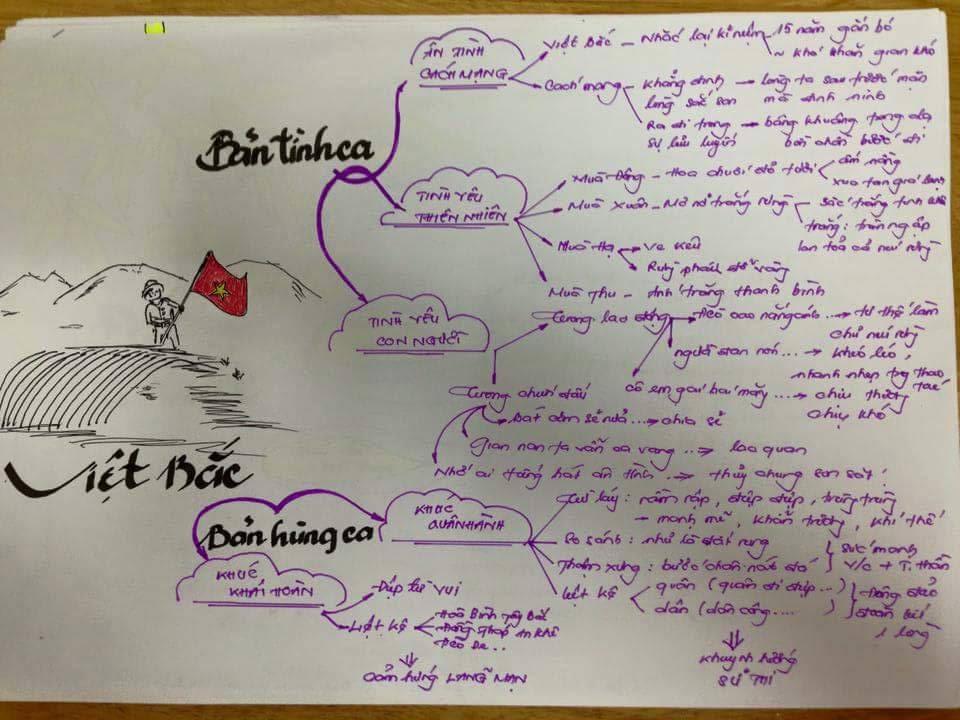 Việt Bắc
Bản tình ca
ÂN TÌNH
CÁCH MẠNG
Việt Bắc - Nhắc lại kỉ niệm
15 năm gắn bó
~ khó khăn gian khổ
Cách mạng
khẳng định
lòng sắc son
lòng ta sau trước mặn
mà đinh ninh
Ra đi trong
sự lưu luyến
bâng khuâng trong dạ
bồn chồn bước đi
TÌNH YÊU
THIÊN NHIÊN
Mùa Đông - Hoa chuối đỏ tươi
ấm nóng
xua tan giá lạnh
Mùa Xuân - Mơ nở trắng rừng
sắc trắng tinh khiết
trắng: tràn ngập
lan toả cả núi rừng
Mùa Hạ
Ve kêu
Rừng phách đổ vàng
Mùa Thu - Ánh trăng thanh bình
TÌNH YÊU
CON NGƯỜI
Trong lao động
Đèo cao nắng ánh ...
tư thế làm
chủ núi rừng
người đan nón ...
khéo léo,
nhanh nhẹn trg thao tác
cô em gái hái măng ...
chịu thương
chịu khó
Trong chiến đấu
Bát cơm sẻ nửa ...
chia sẻ
Gian nan ta vẫn ca vang ...
lạc quan
Nhớ ai tiếng hát ân tình ...
thuỷ chung son sắt!
Bản hùng ca
KHÚC
QUÂN HÀNH
Từ láy: rầm rập, điệp điệp, trùng trùng
- mạnh mẽ, khẩn trương, khí thế
So sánh: như là đất rung
Thậm xưng: bước chân nát đá
sức mạnh
v/c + T. thần
Liệt kê
quân (quân đi điệp ...)
dân (dân công ....)
đông đảo
đoàn kết
1 lòng
Khuynh hướng
SỬ THI
KHÚC
KHẢI HOÀN
- Điệp từ vui
Liệt kê
Hoà Bình Tây Bắc
Đồng Tháp An Khê
Đèo De ..
Cảm hứng LÃNG MẠN